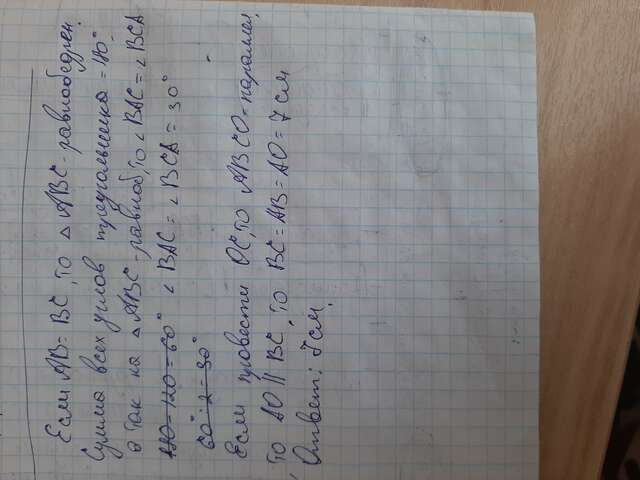 Если AB = BC, то △ ABC - равнобедрен.
Сумма всех углов треугольника = 180°
а так на △ ABC - равноб, то ∠BAC = ∠BCA
180 - 120 = 60° ∠BAC = ∠BCA = 30°
60 : 2 = 30°
Если провести OC, то ABCO - параллел,
то AO || BC, то BC = AB = AO = 7 см
Ответ: 7 см.